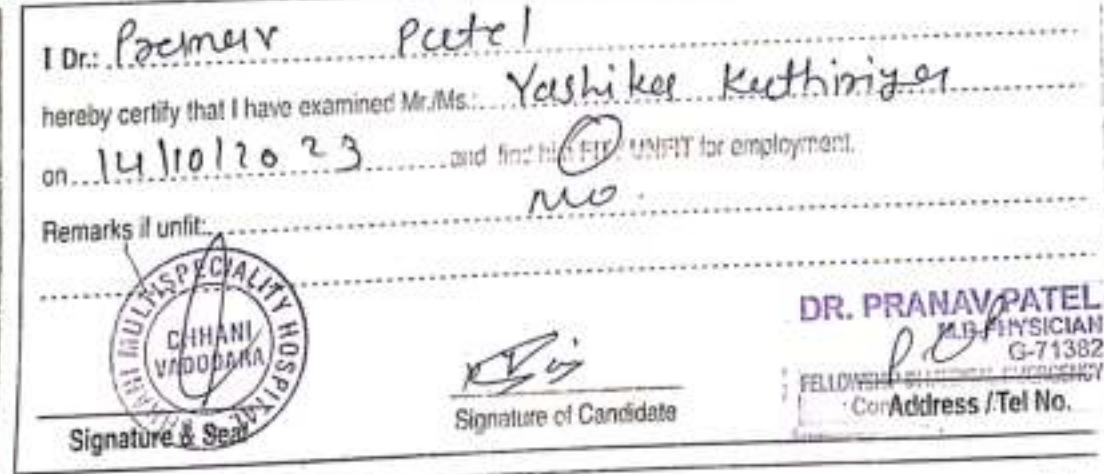 I Dr.: Pranav Patel
hereby certify that I have examined Mr./Ms.: Yashika Kathiriya
on 14/10/2023 and find him FIT / UNFIT for employment.
Remarks if unfit: NO.
MULTISPECIALITY HOSPITAL
CHHANI
VADODARA
Signature & Seal
Signature of Candidate
DR. PRANAV PATEL
M.B. PHYSICIAN
G-71382
FELLOWSHIP IN MEDICAL EMERGENCY
Address / Tel No.